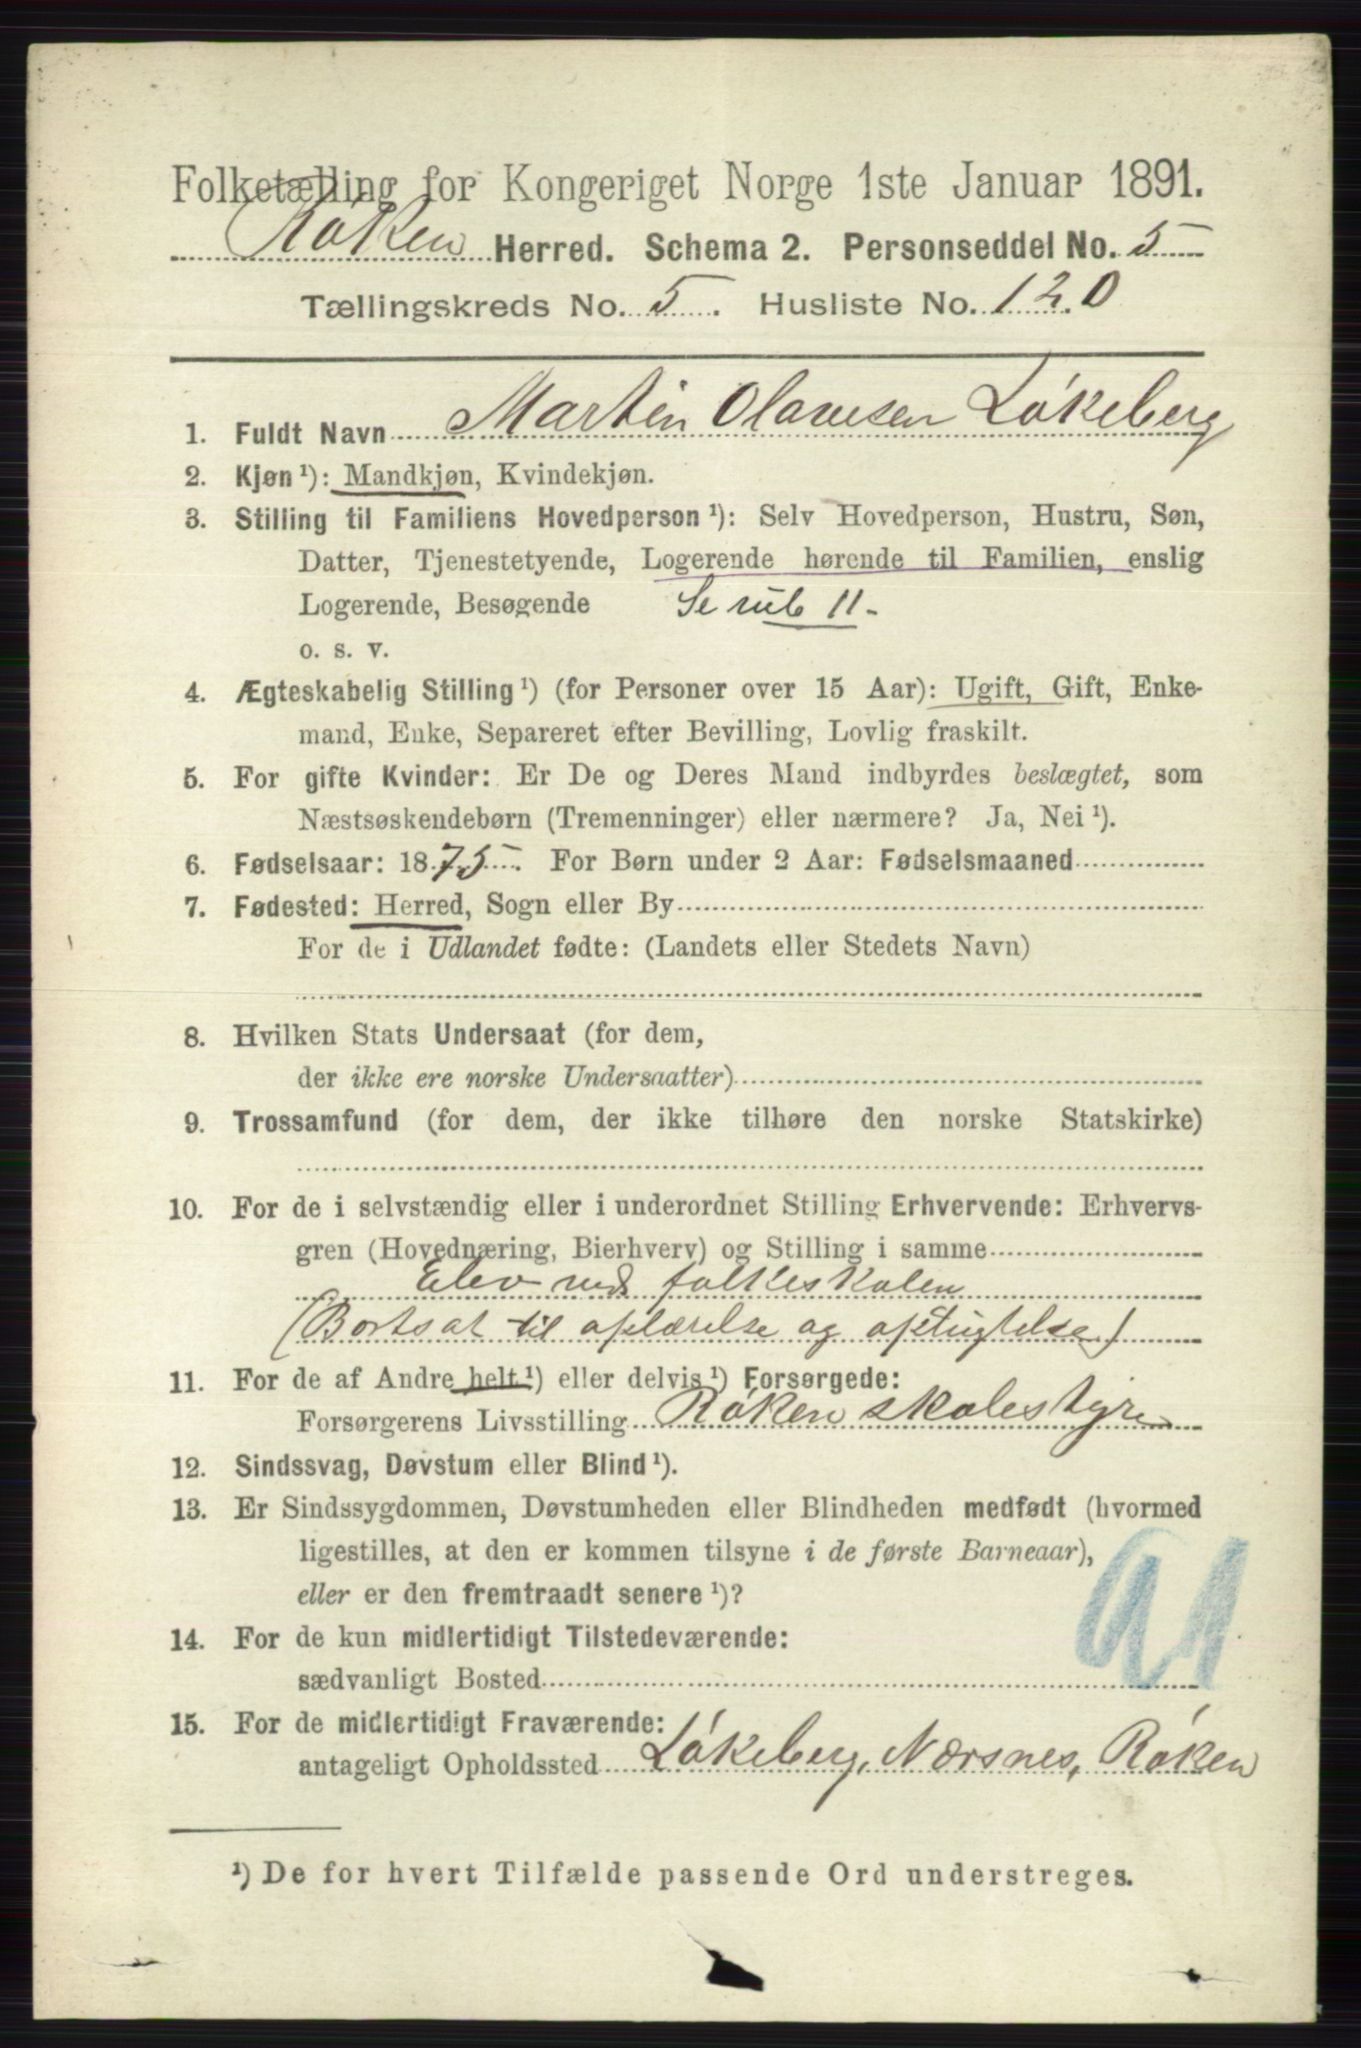 Folketælling for Kongeriget Norge 1ste Januar 1891.
Røken Herred. Schema 2. Personseddel No. 5
Tællingskreds No. 5. Husliste No. 120
1. Fuldt Navn Martin Olavesen Løkeberg
2. Kjøn ¹): Mandkjøn, Kvindekjøn.
3. Stilling til Familiens Hovedperson ¹): Selv Hovedperson, Hustru, Søn,
Datter, Tjenestetyende, Logerende hørende til Familien, enslig
Logerende, Besøgende Se rub 11-
o. s. v.
4. Ægteskabelig Stilling ¹) (for Personer over 15 Aar): Ugift, Gift, Enke-
mand, Enke, Separeret efter Bevilling, Lovlig fraskilt.
5. For gifte Kvinder: Er De og Deres Mand indbyrdes beslægtet, som
Næstsøskendebørn (Tremenninger) eller nærmere? Ja, Nei ¹).
6. Fødselsaar: 1875. For Børn under 2 Aar: Fødselsmaaned
7. Fødested: Herred, Sogn eller By
For de i Udlandet fødte: (Landets eller Stedets Navn)
8. Hvilken Stats Undersaat (for dem,
der ikke ere norske Undersaatter)
9. Trossamfund (for dem, der ikke tilhøre den norske Statskirke)
10. For de i selvstændig eller i underordnet Stilling Erhvervende: Erhvervs-
gren (Hovednæring, Bierhverv) og Stilling i samme
Elev ved folkeskolen
(Bortsat til oplærelse og optugtelse)
11. For de af Andre helt ¹) eller delvis ¹) Forsørgede:
Forsørgerens Livsstilling Røken skolestyre
12. Sindssvag, Døvstum eller Blind ¹).
13. Er Sindssygdommen, Døvstumheden eller Blindheden medfødt (hvormed
ligestilles, at den er kommen tilsyne i de første Barneaar),
eller er den fremtraadt senere ¹)?
91
14. For de kun midlertidigt Tilstedeværende:
sædvanligt Bosted
15. For de midlertidigt Fraværende:
antageligt Opholdssted Løkeberg, Nærsnes, Røken
¹) De for hvert Tilfælde passende Ord understreges.